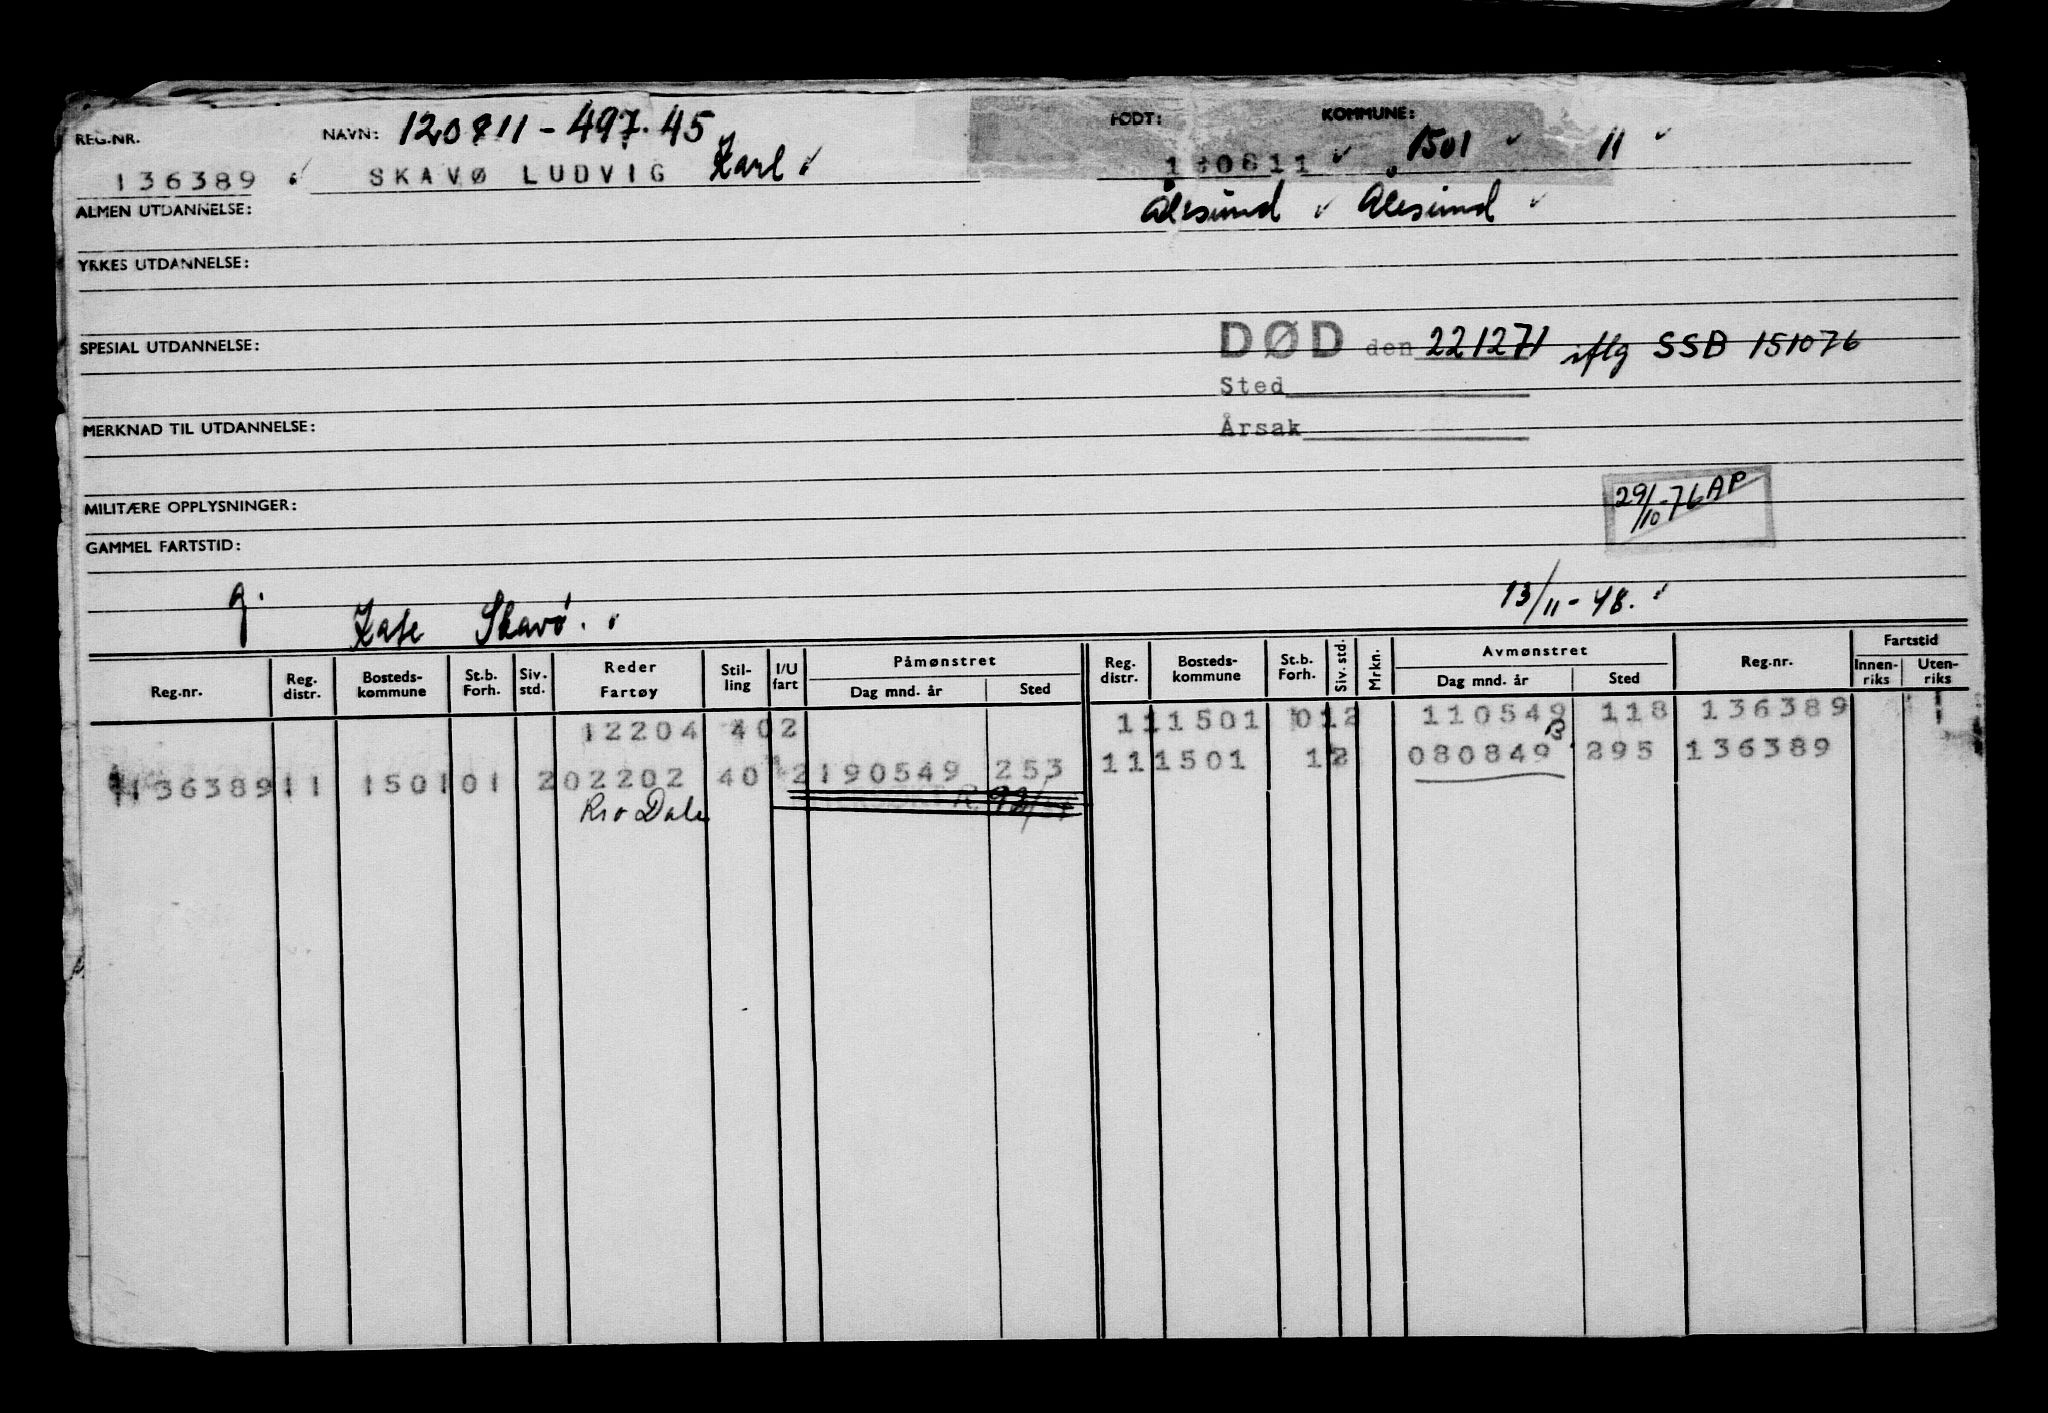 REG.NR. NAVN: 120811 - 497.45 FØDT: KOMMUNE:
136389 SKAVØ LUDVIG Karl 120811 1501 11
Ålesund Ålesund
ALMEN UTDANNELSE:
YRKES UTDANNELSE:
SPESIAL UTDANNELSE:
DØD den 221271 iflg SSB 151076
Sted
Årsak
MERKNAD TIL UTDANNELSE:
MILITÆRE OPPLYSNINGER:
29/10-76 AP
GAMMEL FARTSTID:
g. Kate Skavø. 13/11-48.
Reg.nr. Reg. distr. Bosteds-kommune St.b. Forh. Siv. std. Reder Fartøy Stil-ling I/U fart Påmønstret Dag mnd. år Sted Reg. distr. Bosteds-kommune St.b. Forh. Siv. std. Mrkn. Avmønstret Dag mnd. år Sted Reg.nr. Fartstid Innen-riks Uten-riks
12204 402 111501 012 110549 118 136389
B.
136389 11 1501 01 202202 40 2 190549 253 111501 12 080849 295 136389
Rio Dale